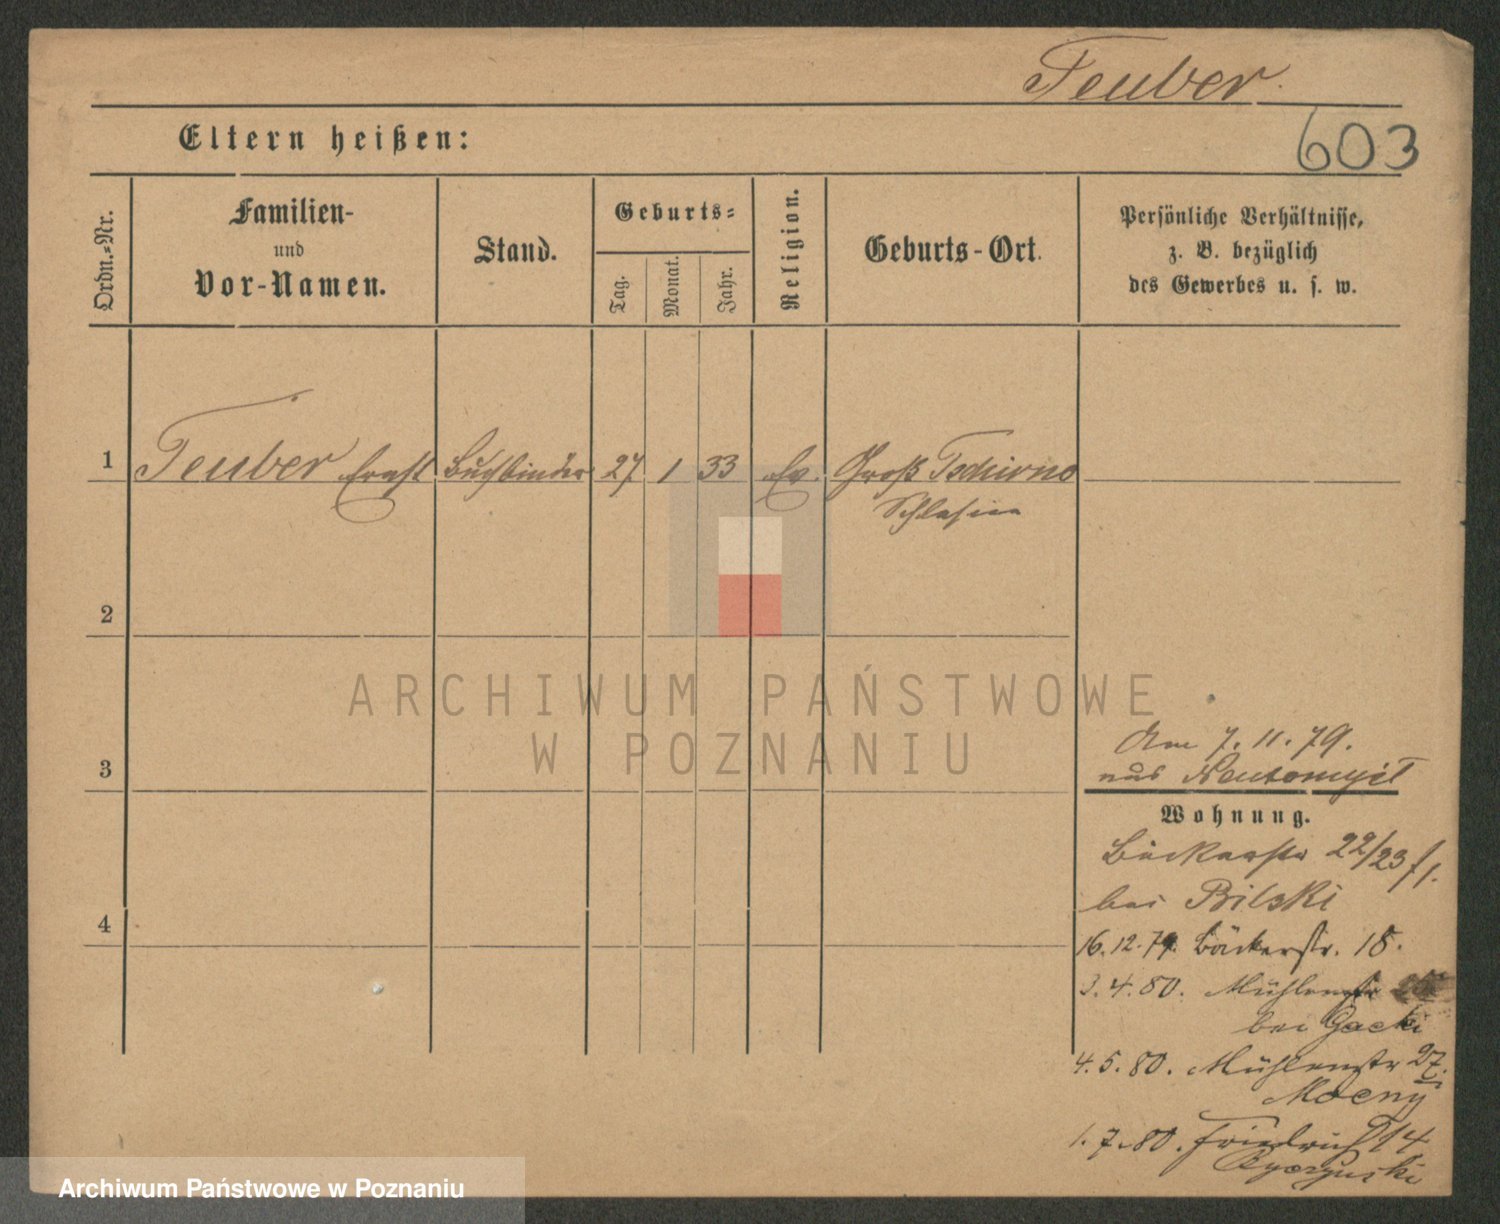 Teuber
603
Eltern heißen:
Ordn.-Nr.
Familien-
und
Vor-Namen.
Stand.
Geburts-
Tag.
Monat.
Jahr.
Religion.
Geburts-Ort.
Persönliche Verhältnisse,
z. B. bezüglich
des Gewerbes u. s. w.
1 Teuber Ernst Buchbinder 27 1 33 Ev. Groß Tschirno
Schlesien
2
3
4
Am 7. 11. 79.
aus Neutomysl
Wohnung.
Bäckerstr 22/23
bei Bilski
16. 12. 79. Bäckerstr. 18.
3. 4. 80. Mühlenstr
bei Gacki
4. 5. 80. Mühlenstr 27.
Moeny
1. 7. 80. Friedrichstr 14
ARCHIWUM PAŃSTWOWE
W POZNANIU
Archiwum Państwowe w Poznaniu